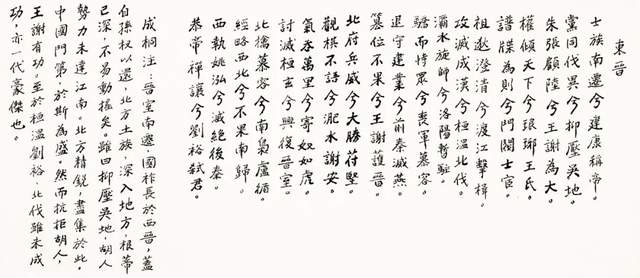 東晉
士族南遷兮建康稱帝。
黨同伐異兮抑壓吳地。
朱張顧陸兮王謝為大。
權傾天下兮琅琊王氏。
譜牒為則兮門閥士宦。
祖逖澄清兮渡江擊楫。
攻滅成漢兮桓溫北伐。
灞水旋師兮洛陽暫駐。
驕而恃眾兮喪軍慕容。
退守建業兮前秦滅燕。
篡位不果兮王謝護晉。
北府兵威兮大勝苻堅。
觀棋不語兮淝水謝安。
氣吞萬里兮寄奴如虎。
討滅桓玄兮興復晉室。
北擒慕容兮南梟盧循。
經略西北兮不果南歸。
西執姚泓兮滅絕後秦。
恭帝禪讓兮劉裕弒君。
成桐注：晉室南遷，國祚長於西晉，蓋
自孫權以還，北方士族，深入地方，根蒂
已深，不易動搖矣。雖曰抑壓吳地，胡人
勢力未達江南。北方精銳，盡集於此，
中國門第，於斯為盛。然而抗拒胡人，
王謝有功。至於桓溫劉裕，北伐雖未成
功，亦一代豪傑也。